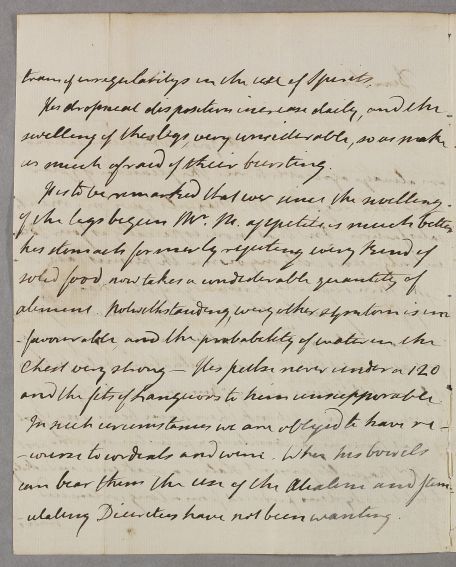 trans of irregularitys in the use of Spirits.
His dropsical disposition increase daily, and the
swelling of the legs, very considerable, so as make
us much afraid of their bursting.
It is to be remarked that ever since the swelling
of the legs began Mr. M. appetite is much better
his stomach formerly rejecting every kind of
solid food, now takes a considerable quantity of
aliment. Notwithstanding, every other symtom is un
-favourable, and the probability of water in the
Chest very strong — His pulse never under a 120
and the fits of Languors to him unsupporable
In such circumstances we are oblyed to have re-
-course to cordials and wine. When his bowels
can bear them the use of the Alcaline and stim-
ulating Diuretics have not been wanting.